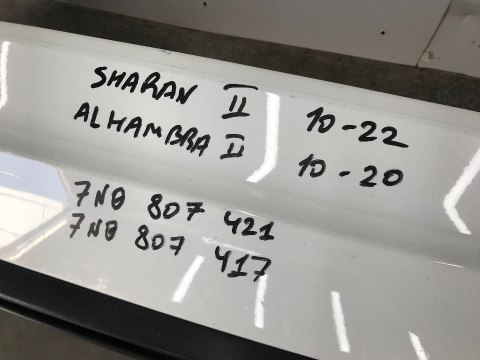 SHARAN II 10-22
ALHAMBRA II 10-20
7N0 807 421
7N0 807 417